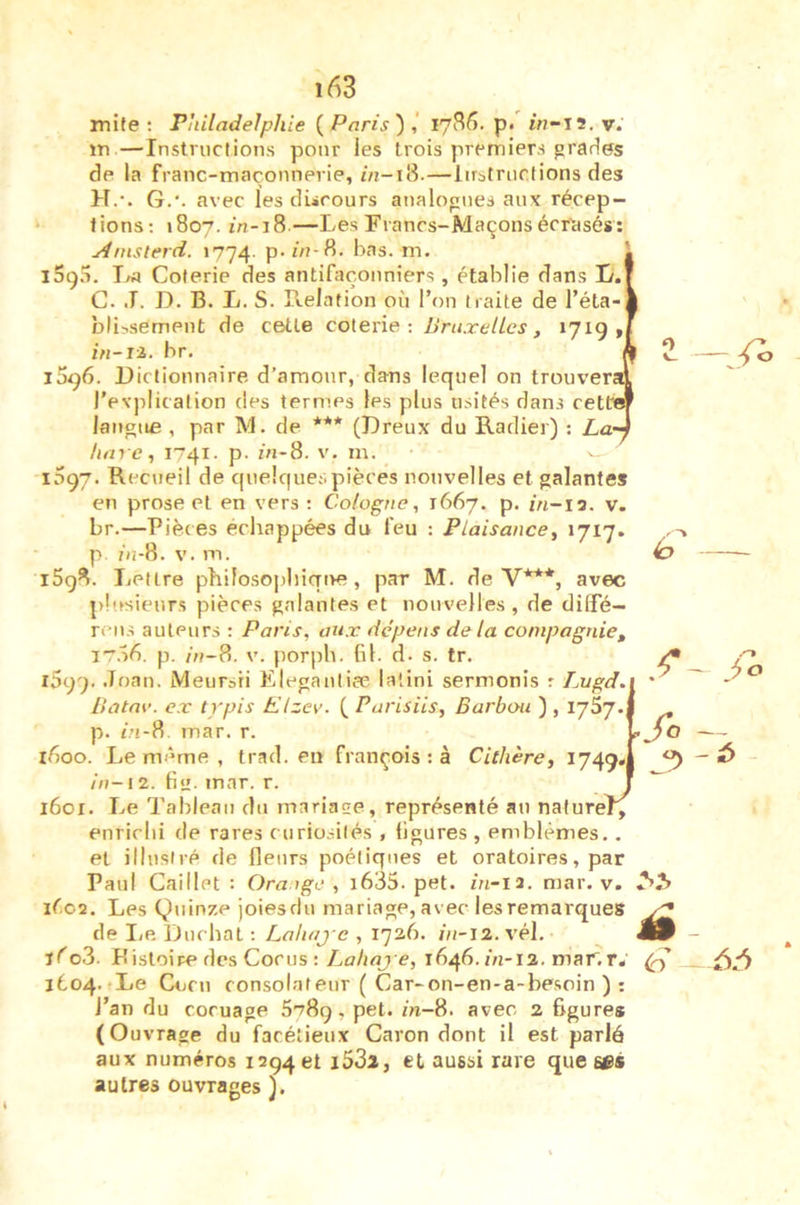 163
mite : Philadelphie ( Paris ) , 1786. p. in-12. v.
m.—Instructions pour les trois premiers grades
de la franc-maçonnerie, in-18.—Instructions des
H.·. G.·. avec les discours analogues aux récep-
tions : 1807. in-18.—Les Francs-Maçons écrasés :
Amsterd. 1774. p. in-8. bas. m.
1595. La Coterie des antifaçonniers, établie dans L.
C. J. D. B. L. S. Relation où l'on traite de l'éta-
blissement de cette coterie : Bruxelles, 1719,
in-12. br. 2 — 50
1596. Dictionnaire d'amour, dans lequel on trouvera
l'explication des termes les plus usités dans cette
langue, par M. de *** (Dreux du Radier) : La-
haye, 1741. p. in-8. v. m.
1597. Recueil de quelques pièces nouvelles et galantes
en prose et en vers : Cologne, 1667. p. in-12. v.
br.—Pièces échappées du feu : Plaisance, 1717.
p. in-8. v. m. 6 —
1598. Lettre philosophique, par M. de V***, avec
plusieurs pièces galantes et nouvelles, de diffé-
rens auteurs : Paris, aux dépens de la compagnie,
1756. p. in-8. v. porph. fil. d. s. tr. 5 — 50
1599. Joan. Meursii Elegantiæ latini sermonis : Lugd.
Batav. ex typis Elzev. ( Parisiis, Barbou ), 1757.
p. in-8. mar. r. 50 —
1600. Le même, trad. en françois : à Cithère, 1749.
in-12. fig. mar. r.
1601. Le Tableau du mariage, représenté au naturel,
enrichi de rares curiosités, figures, emblêmes..
et illustré de fleurs poétiques et oratoires, par
Paul Caillet : Orange, 1635. pet. in-12. mar. v.
1602. Les Quinze joies du mariage, avec les remarques
de Le Duchat : Lahaye, 1726. in-12. vél.
1603. Histoire des Cocus : Lahaye, 1646. in-12. mar. r.
1604. Le Cocu consolateur ( Car-on-en-a-besoin ) :
l'an du cocuage 5789, pet. in-8. avec 2 figures
(Ouvrage du facétieux Caron dont il est parlé
aux numéros 1294 et 1532, et aussi rare que ses
autres ouvrages ).